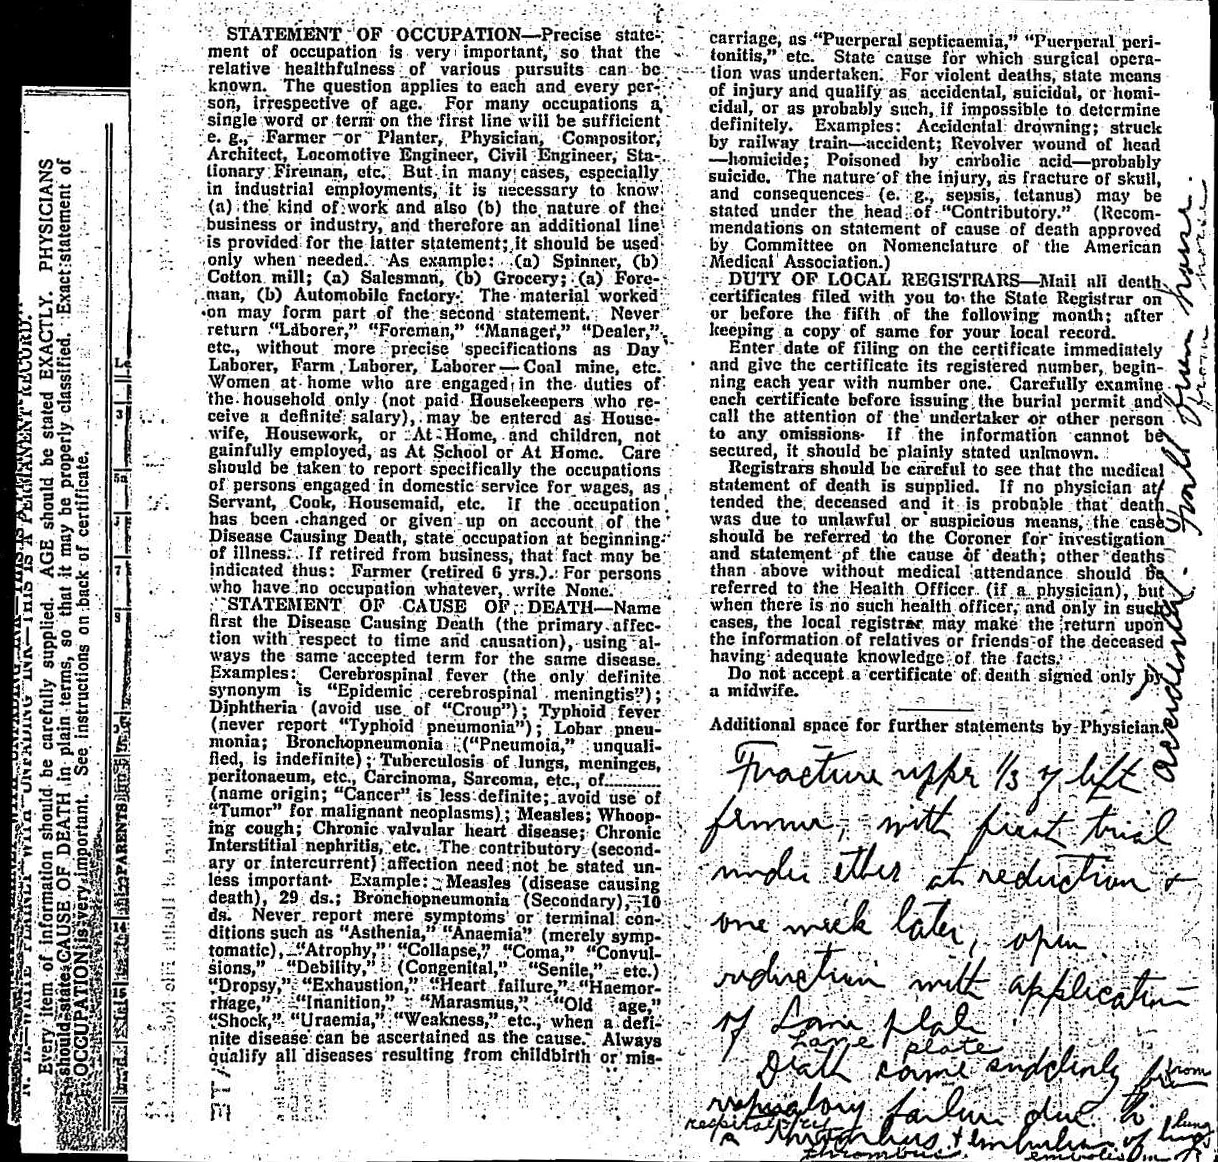 STATEMENT OF OCCUPATION—Precise state-
ment of occupation is very important, so that the
relative healthfulness of various pursuits can be
known. The question applies to each and every per-
son, irrespective of age. For many occupations a
single word or term on the first line will be sufficient
e. g., Farmer or Planter, Physician, Compositor,
Architect, Locomotive Engineer, Civil Engineer, Sta-
tionary Fireman, etc. But in many cases, especially
in industrial employments, it is necessary to know
(a) the kind of work and also (b) the nature of the
business or industry, and therefore an additional line
is provided for the latter statement; it should be used
only when needed. As example: (a) Spinner, (b)
Cotton mill; (a) Salesman, (b) Grocery; (a) Fore-
man, (b) Automobile factory. The material worked
on may form part of the second statement. Never
return "Laborer," "Foreman," "Manager," "Dealer,"
etc., without more precise specifications as Day
Laborer, Farm Laborer, Laborer—Coal mine, etc.
Women at home who are engaged in the duties of
the household only (not paid Housekeepers who re-
ceive a definite salary), may be entered as House-
wife, Housework, or At Home, and children, not
gainfully employed, as At School or At Home. Care
should be taken to report specifically the occupations
of persons engaged in domestic service for wages, as
Servant, Cook, Housemaid, etc. If the occupation
has been changed or given up on account of the
Disease Causing Death, state occupation at beginning
of illness. If retired from business, that fact may be
indicated thus: Farmer (retired 6 yrs.). For persons
who have no occupation whatever, write None.
STATEMENT OF CAUSE OF DEATH—Name
first the Disease Causing Death (the primary affec-
tion with respect to time and causation), using al-
ways the same accepted term for the same disease.
Examples: Cerebrospinal fever (the only definite
synonym is "Epidemic cerebrospinal meningtis");
Diphtheria (avoid use of "Croup"); Typhoid fever
(never report "Typhoid pneumonia"); Lobar pneu-
monia; Bronchopneumonia ("Pneumoia," unquali-
fied, is indefinite); Tuberculosis of lungs, meninges,
peritonaeum, etc., Carcinoma, Sarcoma, etc., of............
(name origin; "Cancer" is less definite; avoid use of
"Tumor" for malignant neoplasms); Measles; Whoop-
ing cough; Chronic valvular heart disease; Chronic
Interstitial nephritis, etc. The contributory (second-
ary or intercurrent) affection need not be stated un-
less important. Example: Measles (disease causing
death), 29 ds.; Bronchopneumonia (Secondary), 10
ds. Never report mere symptoms or terminal con-
ditions such as "Asthenia," "Anaemia" (merely symp-
tomatic), "Atrophy," "Collapse," "Coma," "Convul-
sions," "Debility," (Congenital," "Senile," etc.)
"Dropsy," "Exhaustion," "Heart failure," "Haemor-
rhage," "Inanition," "Marasmus," "Old age,"
"Shock," "Uraemia," "Weakness," etc., when a defi-
nite disease can be ascertained as the cause. Always
qualify all diseases resulting from childbirth or mis-
carriage, as "Puerperal septicaemia," "Puerperal peri-
tonitis," etc. State cause for which surgical opera-
tion was undertaken. For violent deaths, state means
of injury and qualify as accidental, suicidal, or homi-
cidal, or as probably such, if impossible to determine
definitely. Examples: Accidental drowning; struck
by railway train—accident; Revolver wound of head
—homicide; Poisoned by carbolic acid—probably
suicide. The nature of the injury, as fracture of skull,
and consequences (e. g., sepsis, tetanus) may be
stated under the head of "Contributory." (Recom-
mendations on statement of cause of death approved
by Committee on Nomenclature of the American
Medical Association.)
DUTY OF LOCAL REGISTRARS—Mail all death
certificates filed with you to the State Registrar on
or before the fifth of the following month; after
keeping a copy of same for your local record.
Enter date of filing on the certificate immediately
and give the certificate its registered number, begin-
ning each year with number one. Carefully examine
each certificate before issuing the burial permit and
call the attention of the undertaker or other person
to any omissions. If the information cannot be
secured, it should be plainly stated unknown.
Registrars should be careful to see that the medical
statement of death is supplied. If no physician at-
tended the deceased and it is probable that death
was due to unlawful or suspicious means, the case
should be referred to the Coroner for investigation
and statement of the cause of death; other deaths
than above without medical attendance should be
referred to the Health Officer (if a physician), but
when there is no such health officer, and only in such
cases, the local registrar may make the return upon
the information of relatives or friends of the deceased
having adequate knowledge of the facts.
Do not accept a certificate of death signed only by
a midwife.
Additional space for further statements by Physician.
Fracture upper 1/3 of left
femur, with first trial
under ether at reduction &
one week later, open
reduction with application
of Lane plate
Lane plate
Death came suddenly from
from
respiratory failure due to
respiratory
thrombus & embolus of lung
lung
thrombus. embolis in
accidental. Falls from horse.
from horse.
Every item of information should be carefully supplied. AGE should be stated EXACTLY. PHYSICIANS
should state CAUSE OF DEATH in plain terms, so that it may be properly classified. Exact statement of
OCCUPATION is very important. See instructions on back of certificate.
PARENTS